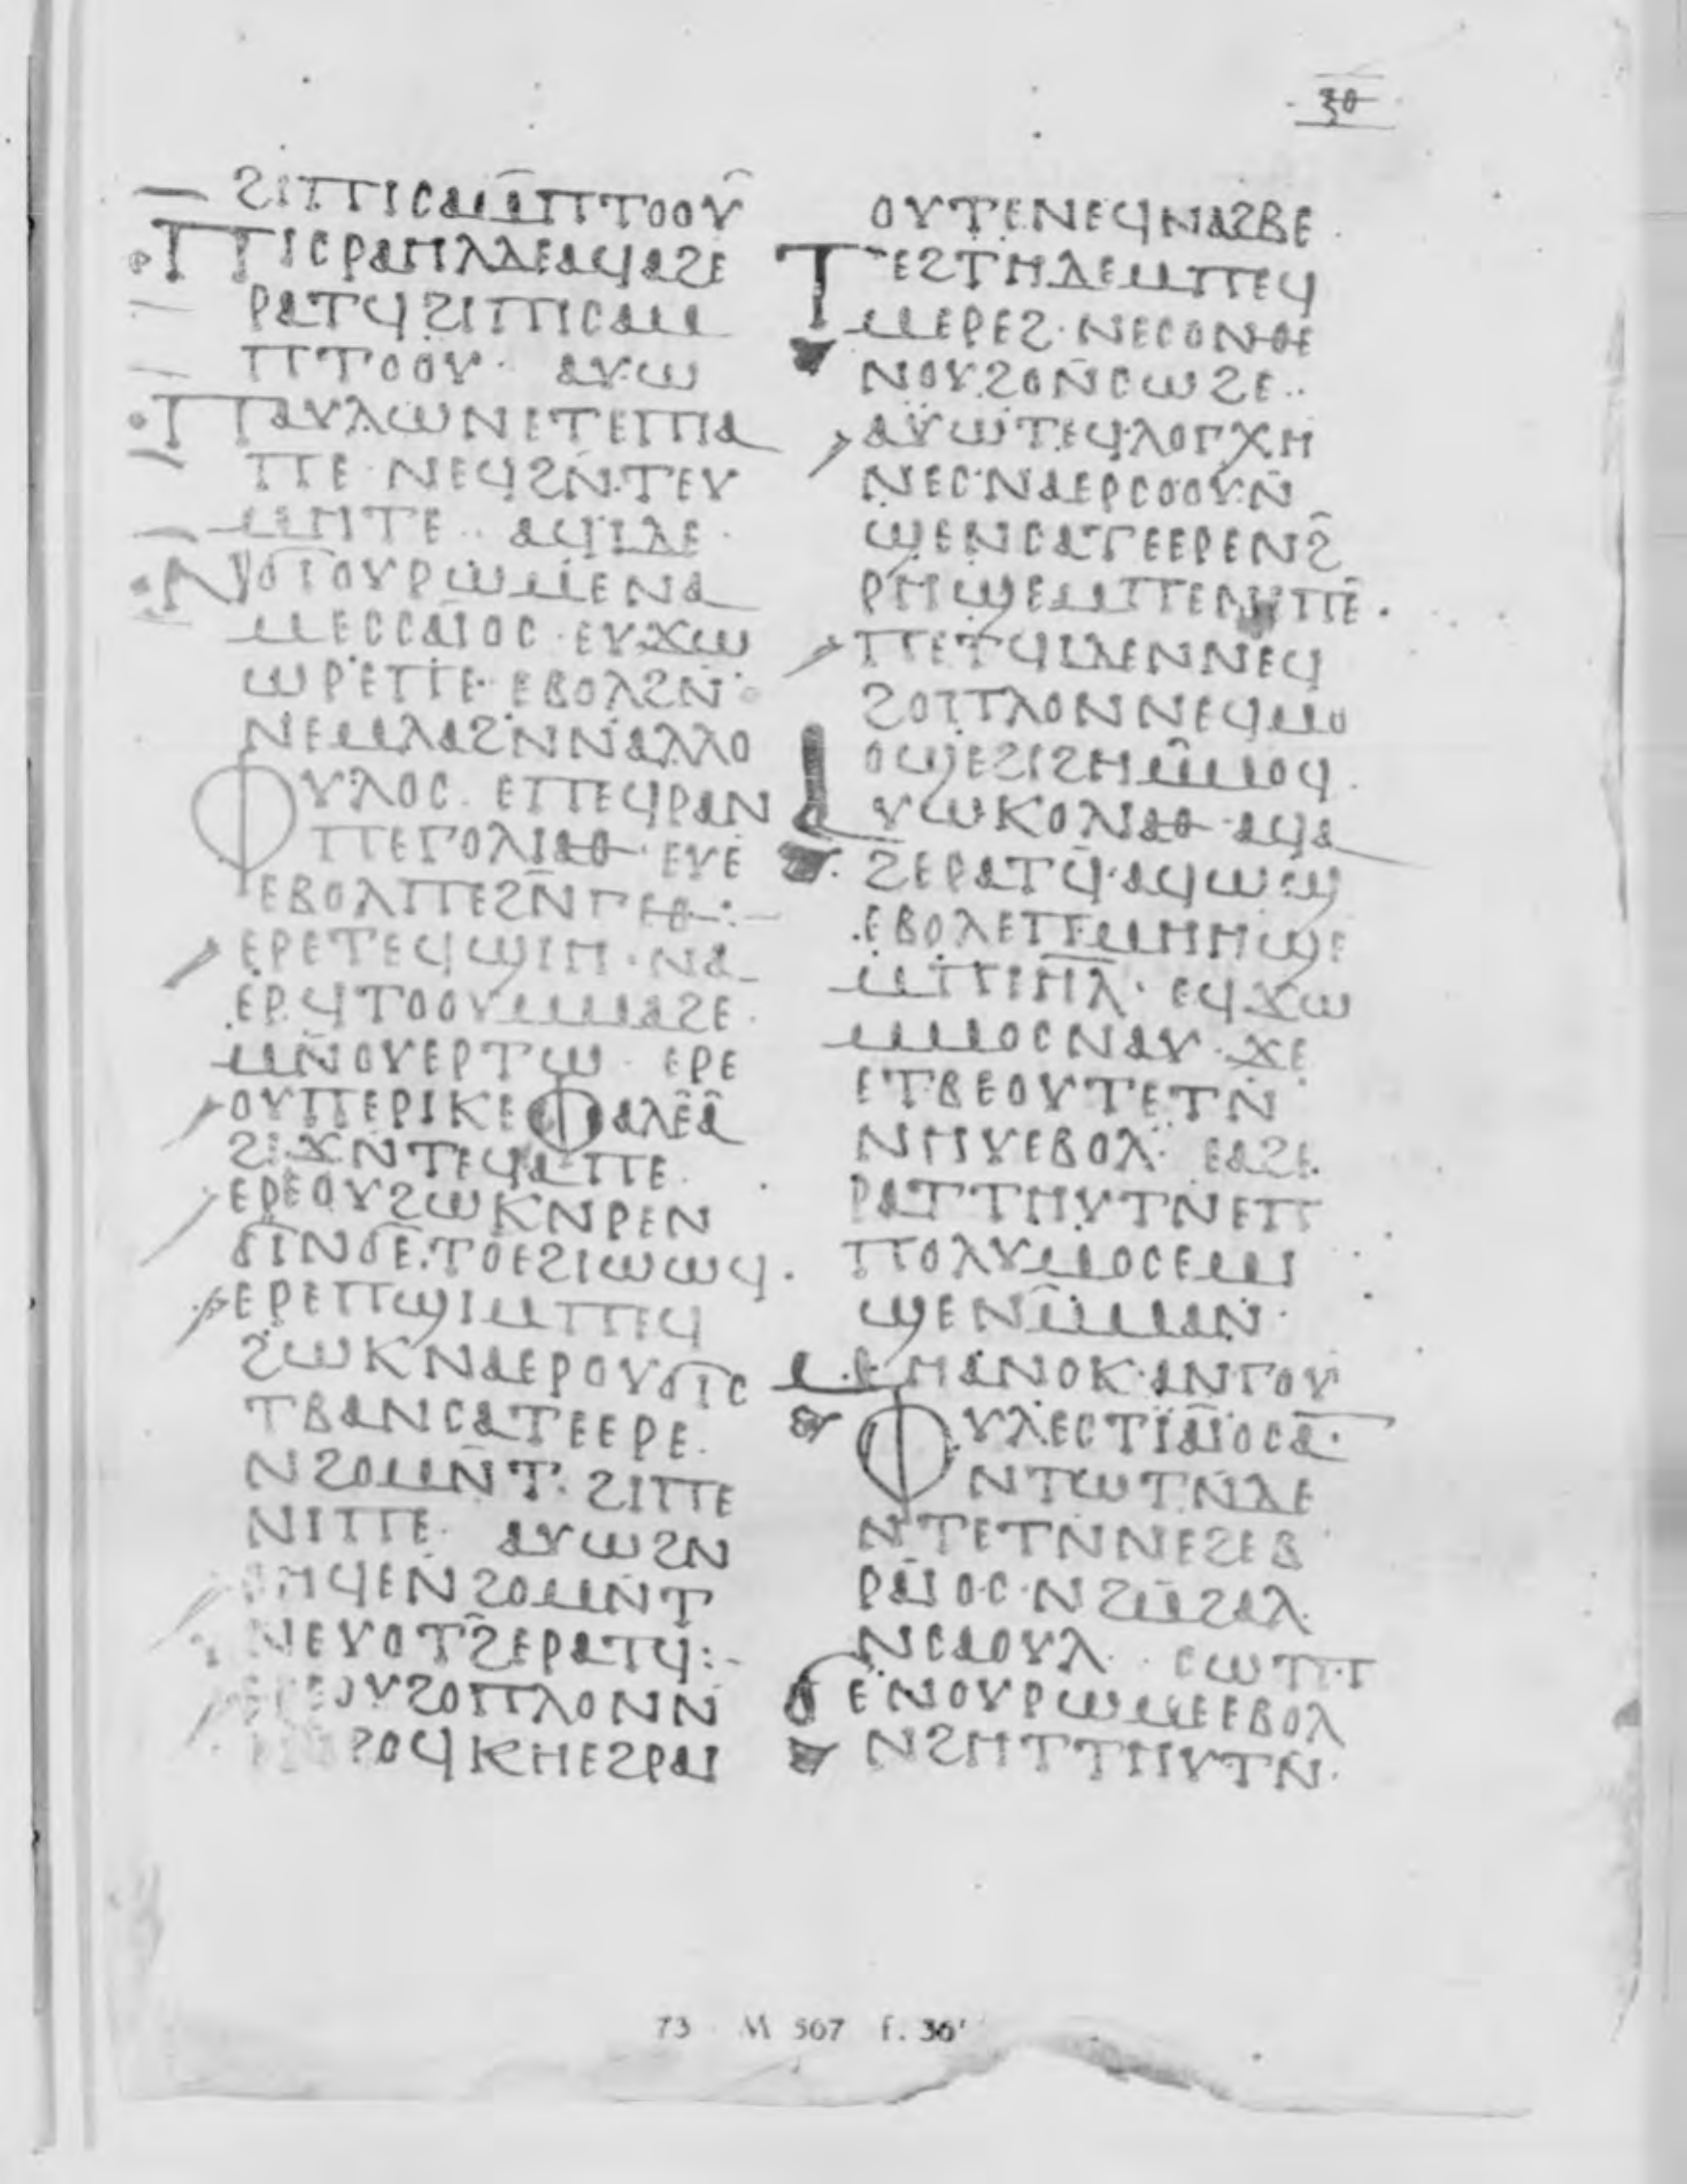 ⲝⲑ
ϩⲓⲡⲓⲥⲁⲙⲡⲧⲟⲟⲩ
ⲡⲓⲥⲣⲁⲏⲗⲇⲉⲁϥⲁϩⲉ
ⲣⲁⲧϥϩⲓⲡⲓⲥⲁⲙ
ⲡⲧⲟⲟⲩ· ⲁⲩⲱ
ⲡⲁⲩⲗⲱⲛⲉⲧⲉⲓⲡⲓⲁ
ⲡⲉ· ⲛⲉϥϩⲛⲧⲉⲩ
ⲙⲏⲧⲉ·· ⲁϥⲓⲇⲉ·
ⲛϭⲓⲟⲩⲣⲱⲙⲉⲛⲁ
ⲙⲉⲥⲥⲁⲓⲟⲥ·ⲉⲩϫⲱ
ⲱⲣⲉⲡⲉ·ⲉⲃⲟⲗϩⲛ
ⲛⲉⲙⲗⲁϩⲛⲛⲁⲗⲗⲟ
ⲫⲩⲗⲟⲥ· ⲉⲡⲉϥⲣⲁⲛ
ⲡⲉⲅⲟⲗⲓⲁⲑ·ⲉⲩⲉ
ⲉⲃⲟⲗⲡⲉϩⲛ̄ⲅⲉⲑ·:–
ⲉⲣⲉⲧⲉϥϣⲓⲏ·ⲛⲁ
ⲉⲣϥⲧⲟⲟⲩⲙⲙⲁϩⲉ·
ⲙⲛ̄ⲟⲩⲉⲣⲧⲱ· ⲉⲣⲉ
ⲟⲩⲡⲉⲣⲓⲕⲉⲫⲁⲗⲉⲁ
ϩⲓϫⲛⲧⲉϥⲁⲡⲉ·
ⲉⲣⲉⲟⲩϩⲱⲕⲛⲣⲉⲛ
ϭⲓⲛϭⲉ·ⲧⲟⲉϩⲓⲱⲱϥ·
ⲉⲣⲉⲡϣⲓⲙⲡⲉϥ
ϩⲱⲕⲛⲁⲉⲣⲟⲩϭⲓⲥ
ⲧⲃⲁⲛⲥⲁⲧⲉⲉⲣⲉ·
ⲛϩⲟⲙⲛ̄ⲧ·ϩⲓⲡⲉ
ⲛⲓⲡⲉ· ⲁⲩⲱϩⲛ
ⲏϥⲉⲛϩⲟⲙⲛⲧ
ⲛⲉⲩⲟⲧϩⲉⲣⲁⲧϥ:–
ⲟⲩϩⲟⲡⲗⲟⲛⲛ
ⲣⲟϥⲕⲏⲉϩⲣⲁⲓ
ⲟⲩⲧⲉⲛⲉϥⲛⲁϩⲃⲉ·
ⲧⲉϩⲧⲏⲇⲉⲙⲡⲉϥ
ⲙⲉⲣⲉϩ·ⲛⲉⲥⲟⲛⲑⲉ
ⲛⲟⲩϩⲟⲛ̄ⲥⲱϩⲉ··
ⲁⲩⲱⲧⲉϥⲗⲟⲅⲭⲏ
ⲛⲉⲥⲛⲁⲉⲣⲥⲟⲟⲩⲛ̄
ϣⲉⲛⲥⲁⲧⲉⲉⲣⲉⲛϩ
ⲣⲏϣⲉⲙⲡⲉⲛⲓⲡⲉ·
ⲡⲉⲧϥⲓⲇⲉⲛⲛⲉϥ
ϩⲟⲡⲗⲟⲛⲛⲉϥⲙⲟ
ⲟϣⲉϩⲓϩⲏⲙ̄ⲙⲟϥ·
ⲁⲩⲱⲕⲟⲗⲓⲁⲑ·ⲁϥⲁ
ϩⲉⲣⲁⲧϥ·ⲁϥⲱϣ
ⲉⲃⲟⲗⲉⲡⲉⲙⲏⲏϣⲉ
ⲙⲡⲓⲏ̄ⲗ̄· ⲉϥϫⲱ
ⲙⲙⲟⲥⲛⲁⲩ·ϫⲉ
ⲉⲧⲃⲉⲟⲩⲧⲉⲧⲛ
ⲛⲏⲩⲉⲃⲟⲗ· ⲉⲁϩⲉ
ⲣⲁⲧⲧⲏⲩⲧⲛⲉⲡ
ⲡⲟⲗⲩⲙⲟⲥⲉⲙⲓ
ϣⲉⲛⲙ̄ⲙⲁⲛ·
ⲙⲏⲁⲛⲟⲕ·ⲁⲛⲅⲟⲩ
ⲫⲩⲗⲉⲥⲧⲓⲁⲓⲟⲥⲁ·
ⲛⲧⲱⲧⲛⲇⲉ
ⲛⲧⲉⲧⲛⲛⲉϩⲉⲃ
ⲣⲁⲓⲟⲥ·ⲛϩⲙϩⲁⲗ
ⲛⲥⲁⲟⲩⲗ· ⲥⲱⲧⲡ
ϭⲉⲛⲟⲩⲣⲱⲙⲉⲉⲃⲟⲗ
ⲛϩⲏⲧⲧⲏⲩⲧⲛ·
73 M 567 f. 36'